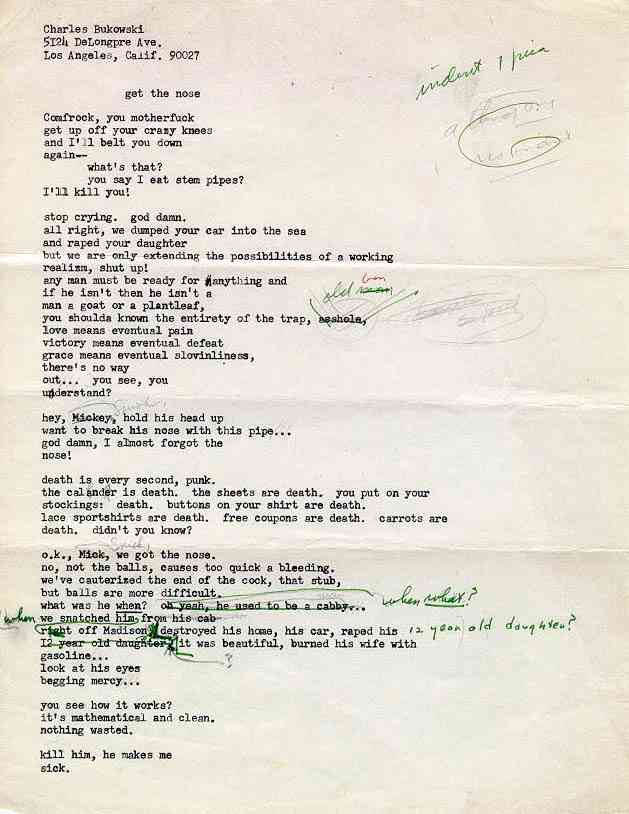 Charles Bukowski
5I24 DeLongpre Ave.
Los Angeles, Calif. 90027
indent 1 pica
get the nose
Comfrock, you motherfuck
get up off your crazy knees
and I'll belt you down
again--
what's that?
you say I eat stem pipes?
I'll kill you!
stop crying. god damn.
all right, we dumped your car into the sea
and raped your daughter
but we are only extending the possibilities of a working
realizm, shut up!
any man must be ready for anything and
if he isn't then he isn't a
man a goat or a plantleaf,
old
you shoulda known the entirety of the trap, asshole,
love means eventual pain
victory means eventual defeat
grace means eventual slovinliness,
there's no way
out... you see, you
understand?
hey, Mickey, hold his head up
want to break his nose with this pipe...
god damn, I almost forgot the
nose!
death is every second, punk.
the calander is death. the sheets are death. you put on your
stockings: death. buttons on your shirt are death.
lace sportshirts are death. free coupons are death. carrots are
death. didn't you know?
o.k., Mick, we got the nose.
no, not the balls, causes too quick a bleeding.
we've cauterized the end of the cock, that stub,
but balls are more difficult.
what was he when? oh yeah, he used to be a cabby... when what?
when we snatched him from his cab
right off Madison, destroyed his home, his car, raped his 12 year old daughter?
I2 year old daughter, it was beautiful, burned his wife with
?
gasoline...
look at his eyes
begging mercy...
you see how it works?
it's mathematical and clean.
nothing wasted.
kill him, he makes me
sick.